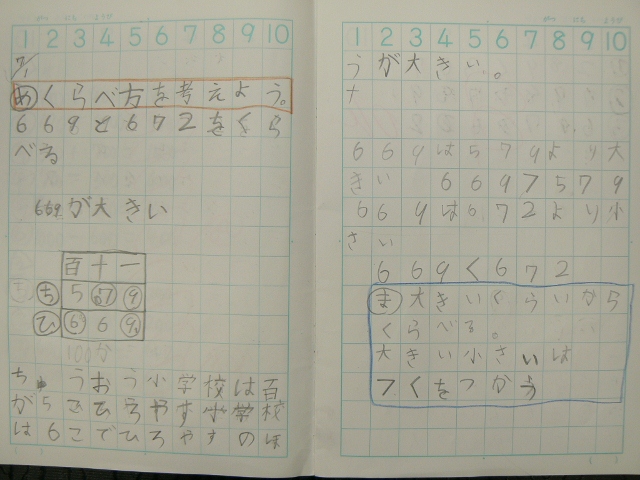 1 2 3 4 5 6 7 8 9 10
め くらべ方を考えよう。
669と672をくら
べる
669が大きい
百 十 一
ち 5 67 9
ひ 6 6 9
ち うおう小学校は百
が5こひろやす小学校
は6こでひろやすのほ
1 2 3 4 5 6 7 8 9 10
うが大きい。
669は579より大
きい 669>579
669は672より小
さい
669<672
ま 大きいくらいから
くらべる。
大きい小さいは
>くをつかう